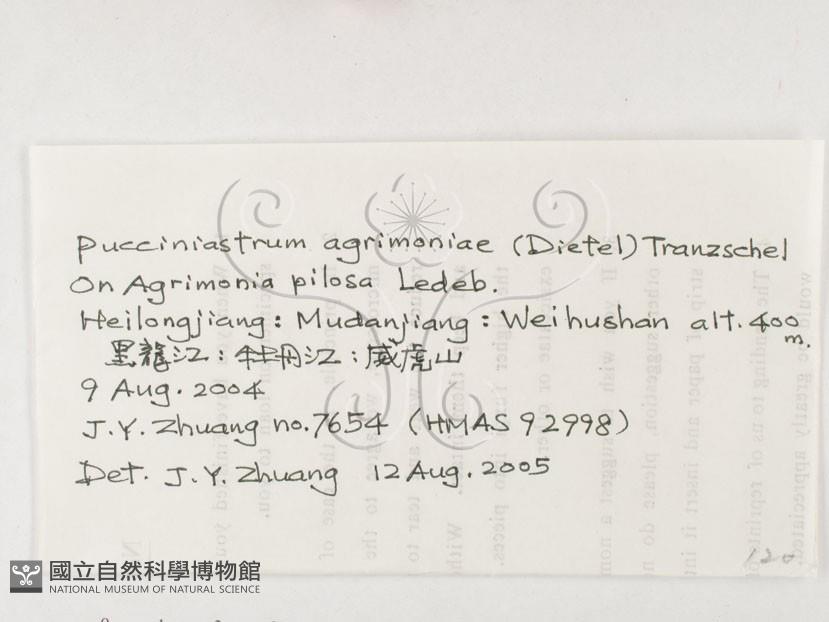 Pucciniastrum agrimoniae (Dietel) Tranzschel
On Agrimonia pilosa Ledeb.
Heilongjiang: Mudanjiang: Weihushan alt. 400 m.
黑龍江: 牡丹江: 威虎山
9 Aug. 2004
J.Y. Zhuang no. 7654 (HMAS 92998)
Det. J.Y. Zhuang 12 Aug. 2005
120
國立自然科學博物館
NATIONAL MUSEUM OF NATURAL SCIENCE